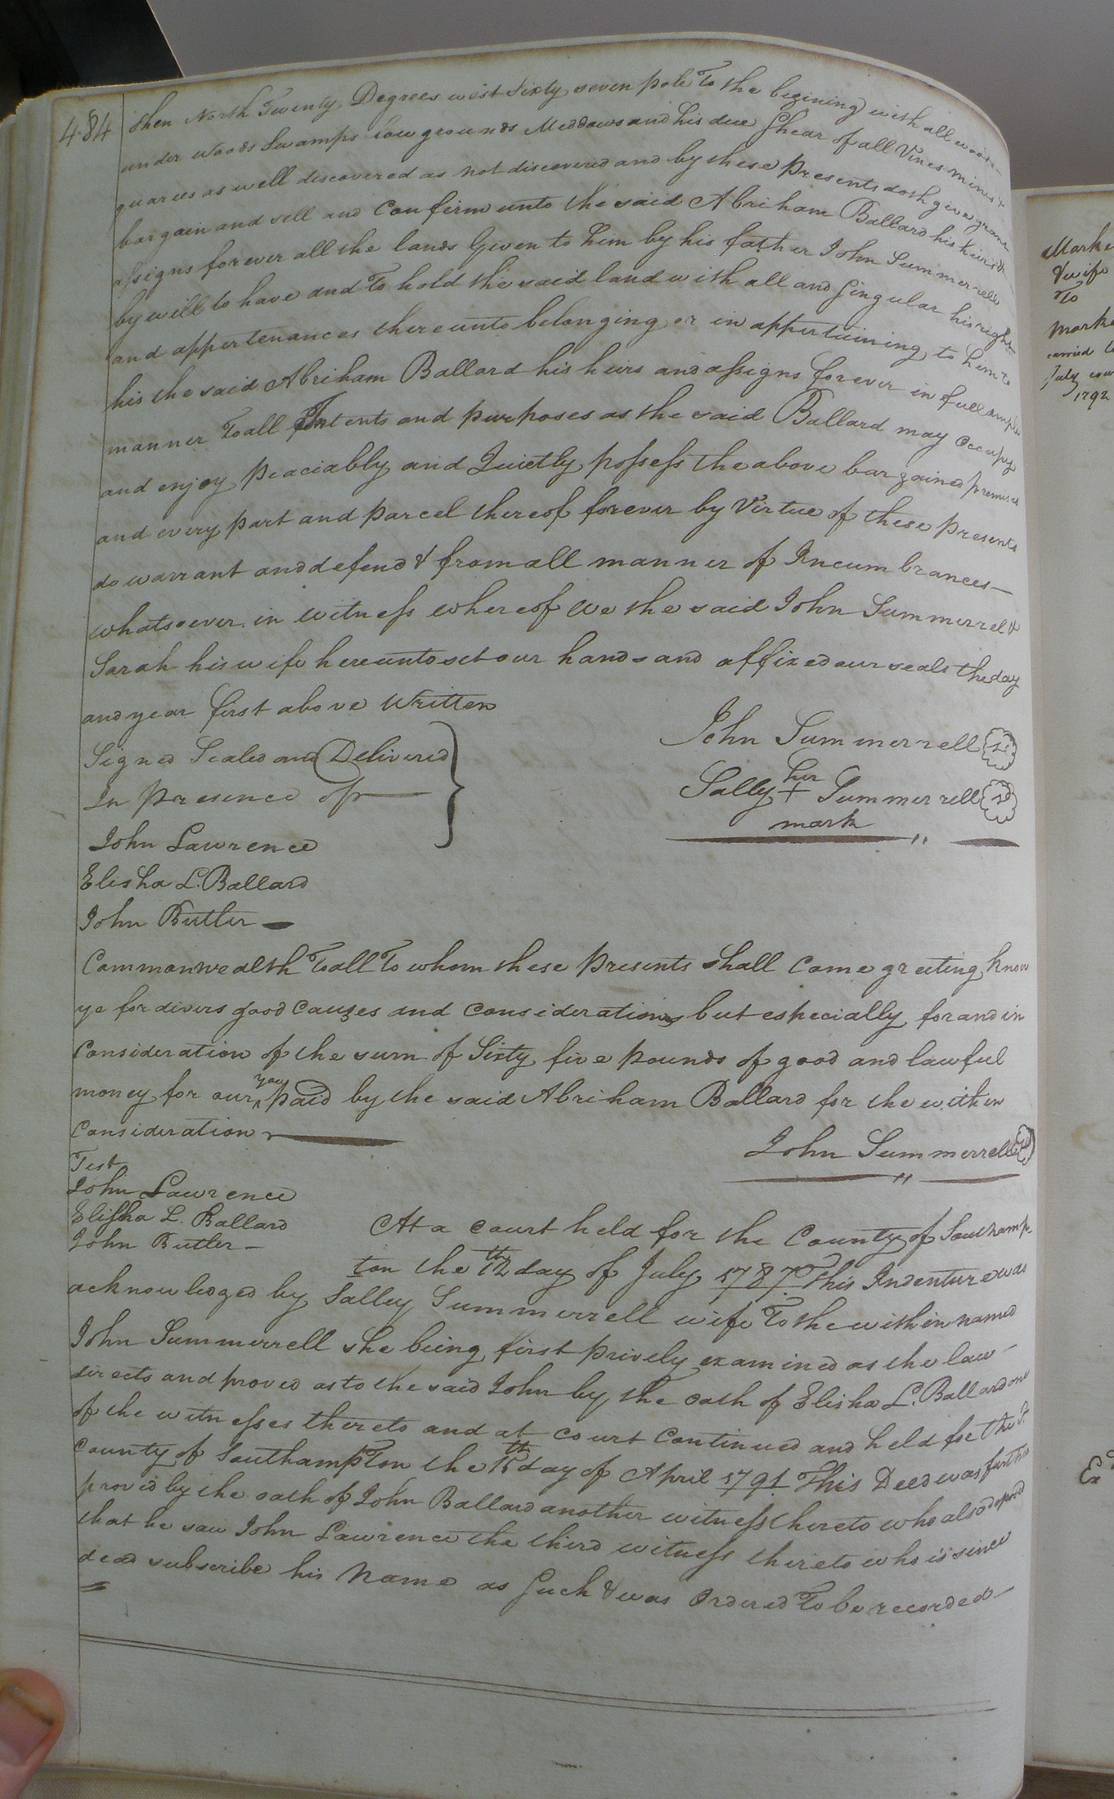 484
then North Twenty Degrees west Sixty seven pole To the begining with all woods
under woods Swamps low grounds Meddows and his due Shear of all Vines mines &
quaries as well discovered as not discovered and by these Presents doth give grant
bargain and sell and Confirm unto the said Abriham Ballard his heirs &
assigns forever all the lands Given to him by his father John Summerrell
by will to have and To hold the said land with all and Singular his right
and appertenances thereunto belonging or in appertaining to him to
his the said Abriham Ballard his heirs and assigns forever in full ample
manner To all Intents and purposes as the said Ballard may occupy
and enjoy peaciably and Quietly possess the above bargained premises
and every part and parcel thereof forever by Virtue of these presents
do warrant and defend & from all manner of Incumbrances —
whatsoever in witness whereof we the said John Summerrel &
Sarah his wife hereunto set our hands and affixed our seals the day
and year first above Written
Signed Sealed and Delivered
In Presence of —
John Lawrence
Elisha L. Ballard
John Butler —
John Summerrell
Sally her + Summerrell
mark
Commonwealth To all To whom these Presents shall Come greeting know
ye for divers good Causes and Considerations but especially for and in
Consideration of the sum of Sixty five pounds of good and lawful
money for our paid by the said Abriham Ballard for the within
Consideration
John Summerrell
Test
John Lawrence
Elisha L. Ballard
John Butler —
At a court held for the County of Southamp
ton the 12th day of July 1787 This Indenture was
acknowledged by Salley Summerrell wife To the within named
John Summerrell she being first privily examined as the law —
directs and proved as to the said John by the oath of Elisha L. Ballard one
of the witnesses thereto and at court Continued and held for the
County of SouthampTon the 15th day of April 1791 This Deed was further
proved by the oath of John Ballard another witness thereto who also deposed
that he saw John Lawrence the third witness thereto who is since
dead subscribe his Name as Such & was Ordered To be recorded —
wife
To
July
1792